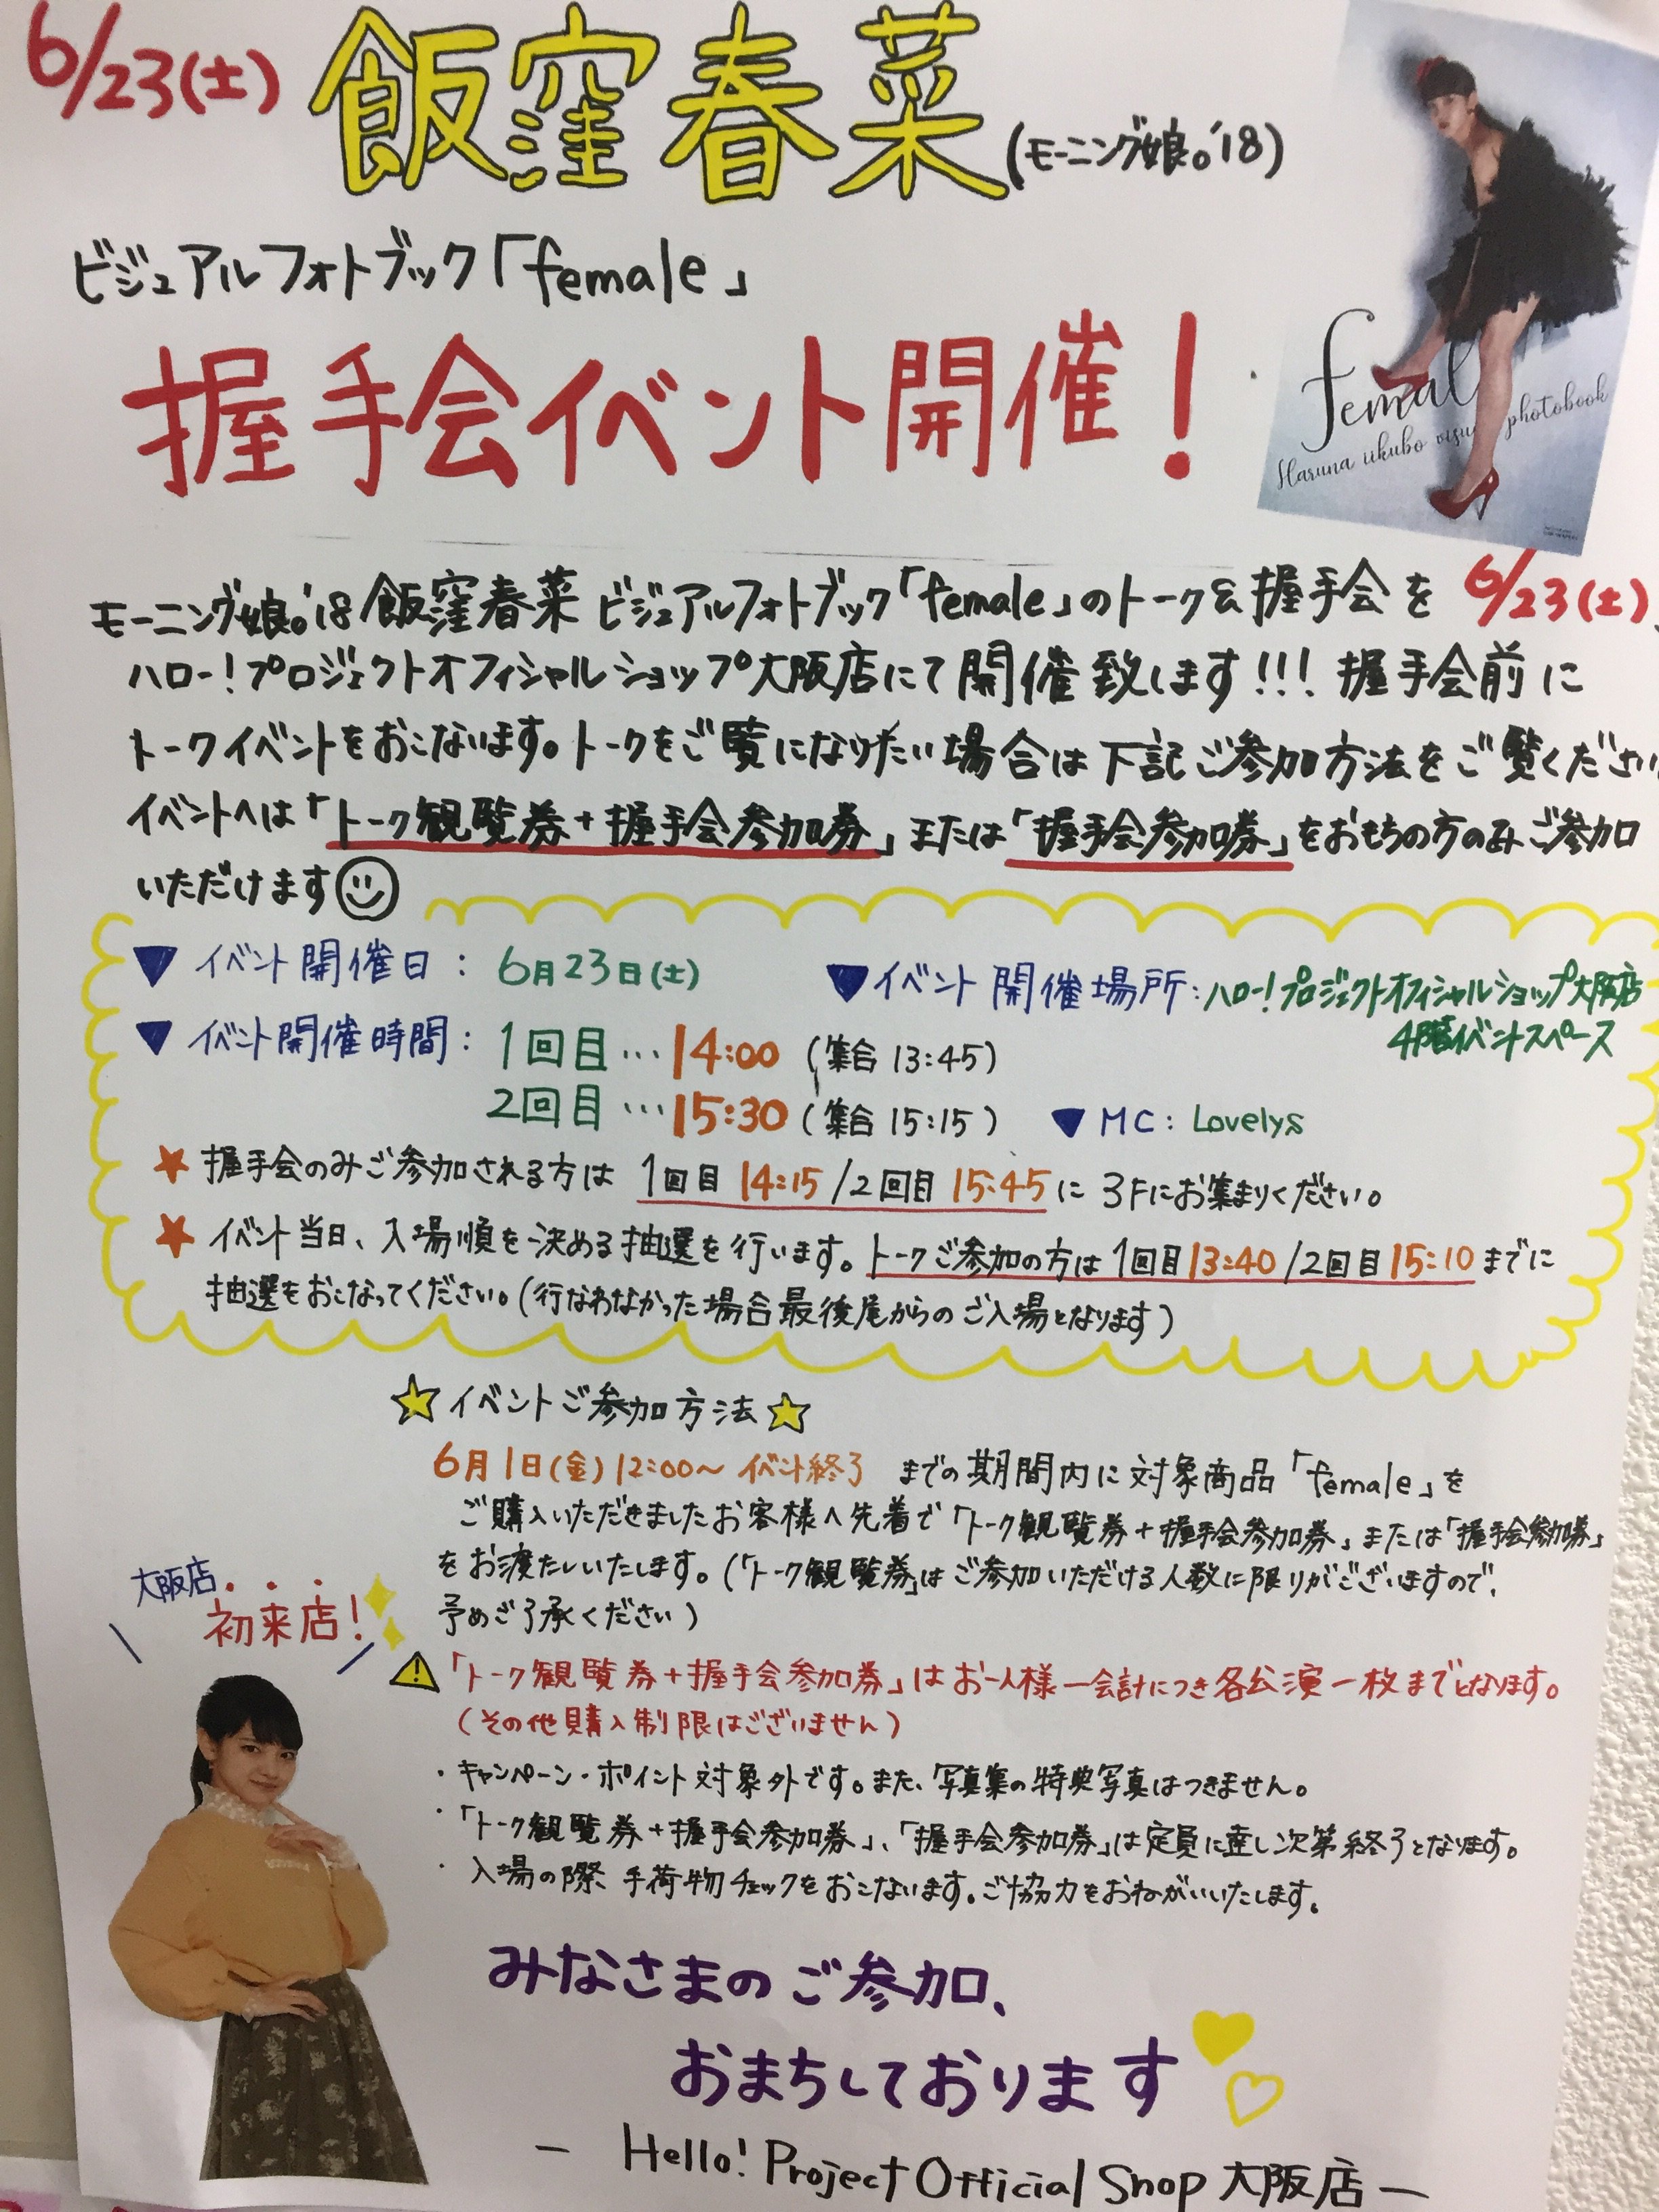 6/23(土) 飯窪春菜(モーニング娘。'18)
ビジュアルフォトブック「female」
握手会イベント開催!
female
Haruna iikubo visual photobook
モーニング娘。'18 飯窪春菜 ビジュアルフォトブック「female」のトーク&握手会を 6/23(土)、
ハロー!プロジェクトオフィシャルショップ大阪店にて開催致します!!! 握手会前に
トークイベントをおこないます。トークをご覧になりたい場合は下記ご参加方法をご覧ください
イベントへは「トーク観覧券+握手会参加券」または「握手会参加券」をおもちの方のみご参加
いただけます
▼イベント開催日: 6月23日(土) ▼イベント開催場所:ハロー!プロジェクトオフィシャルショップ大阪店
4階イベントスペース
▼イベント開催時間: 1回目…14:00 (集合 13:45)
2回目…15:30 (集合 15:15) ▼MC: Lovelys
★握手会のみご参加される方は 1回目 14:15/2回目 15:45に 3Fにお集まりください。
★イベント当日、入場順を決める抽選を行います。トークご参加の方は1回目13:40/2回目15:10までに
抽選をおこなってください。(行なわなかった場合最後尾からのご入場となります)
☆イベントご参加方法☆
6月1日(金)12:00〜イベント終了 までの期間内に対象商品「female」を
ご購入いただきましたお客様へ先着で「トーク観覧券+握手会参加券」または「握手会参加券」
をお渡したしいたします。(「トーク観覧券」はご参加いただける人数に限りがございますので、
予めご了承ください)
大阪店
初来店!
⚠「トーク観覧券+握手会参加券」はお一人様一会計につき各公演一枚までとなります。
(その他購入制限はございません)
・キャンペーン・ポイント対象外です。また、写真集の特典写真はつきません。
・「トーク観覧券+握手会参加券」、「握手会参加券」は定員に達し次第終了となります。
・入場の際、手荷物チェックをおこないます。ご協力をおねがいいたします。
みなさまのご参加、
おまちしております
― Hello! Project Official Shop 大阪店 ―